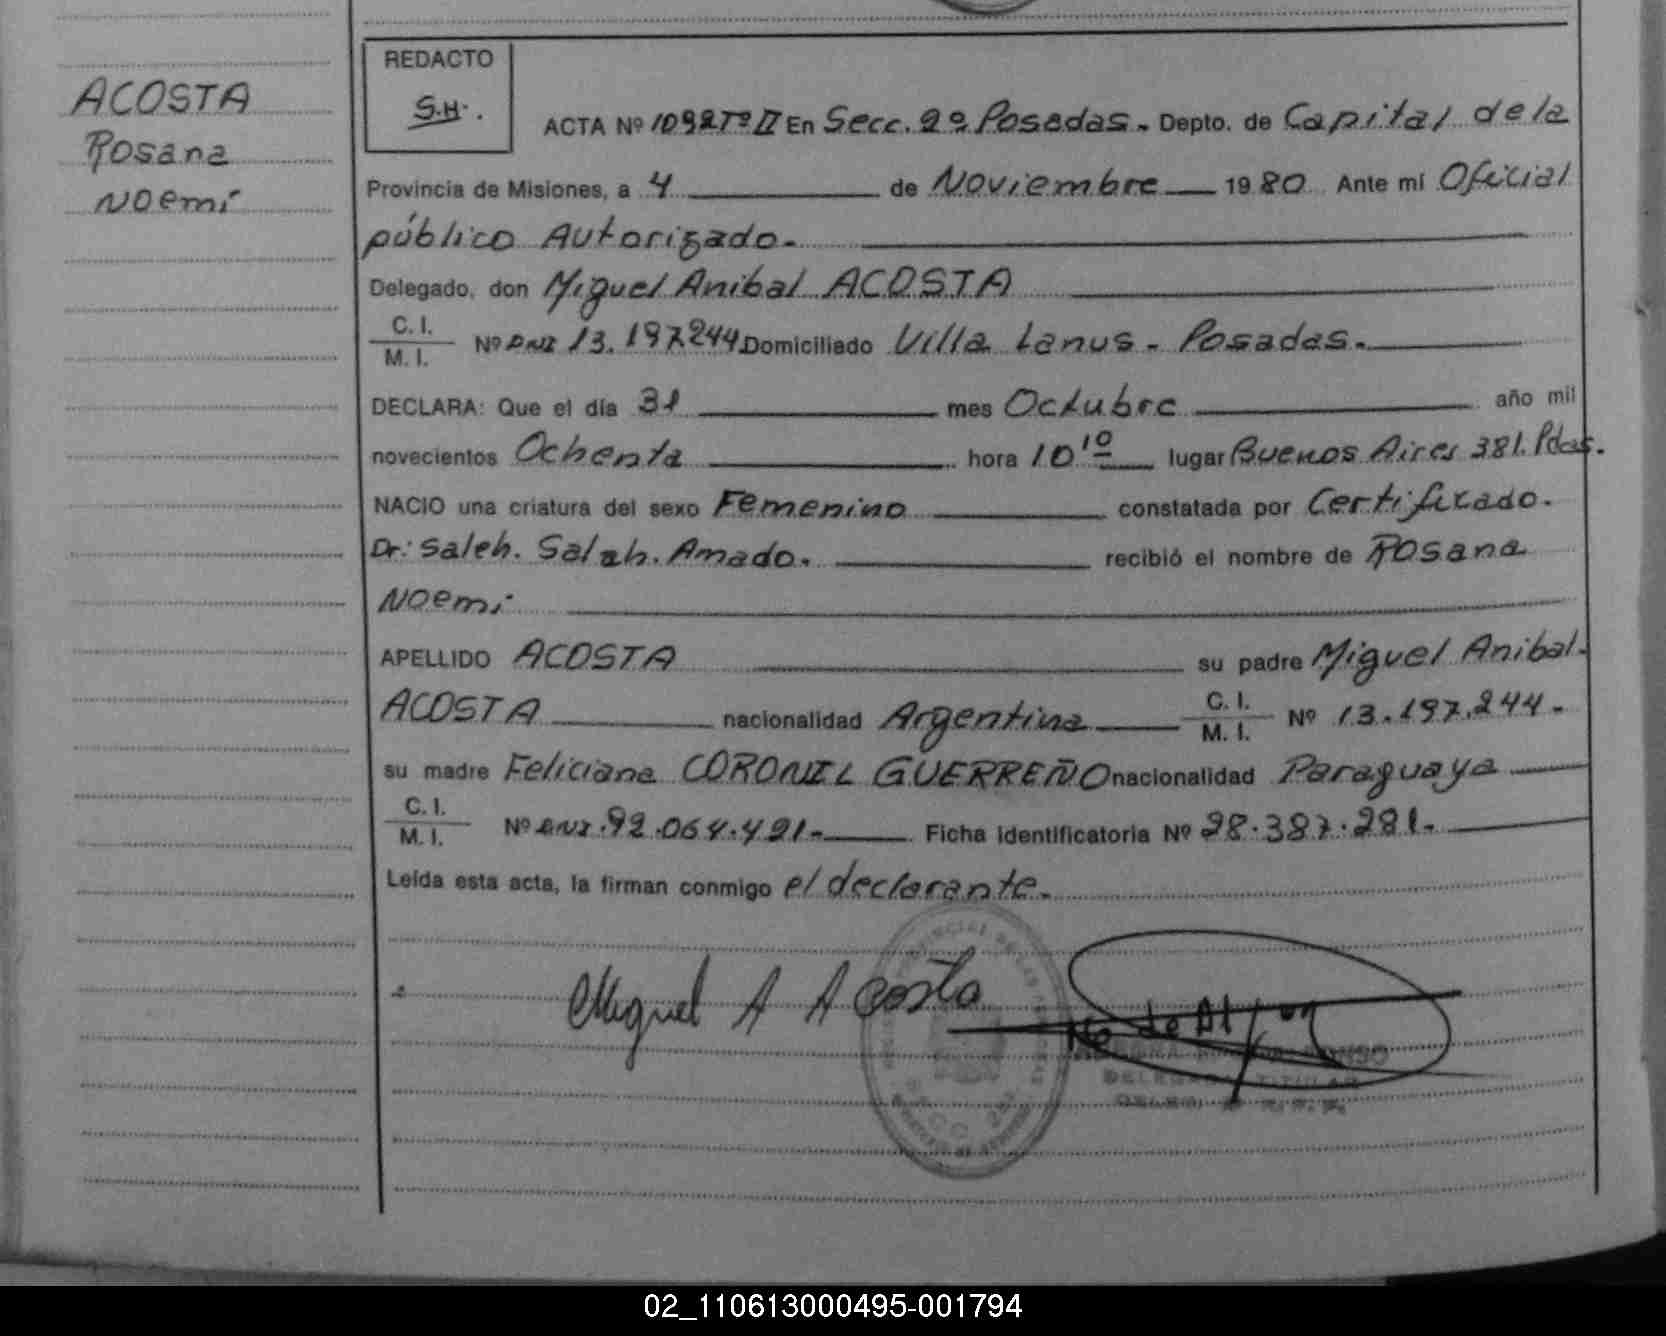 ACOSTA
Rosana
Noemi
REDACTO
S.H.
ACTA Nº 1092 Tº II En Secc. 2º Posadas. Depto. de Capital de la
Provincia de Misiones, a 4 de Noviembre 1980 Ante mí Oficial
público Autorizado.
Delegado, don Miguel Anibal ACOSTA
C. I.
M. I. Nº DNI 13.197.244 Domiciliado Villa Lanus - Posadas.
DECLARA: Que el día 31 mes Octubre año mil
novecientos Ochenta hora 10 10 lugar Buenos Aires 381. Pdas.
NACIO una criatura del sexo Femenino constatada por Certificado.
Dr: Saleh. Salah. Amado. recibió el nombre de Rosana
Noemi
APELLIDO ACOSTA su padre Miguel Anibal.
ACOSTA nacionalidad Argentina C. I. M. I. Nº 13.197.244.
su madre Feliciana CORONEL GUERREÑO nacionalidad Paraguaya
C. I.
M. I. Nº DNI. 92.064.421. Ficha Identificatoria Nº 28.387.281.
Leída esta acta, la firman conmigo el declarante.
Miguel A Acosta
DELEGADA TITULAR
02_110613000495-001794